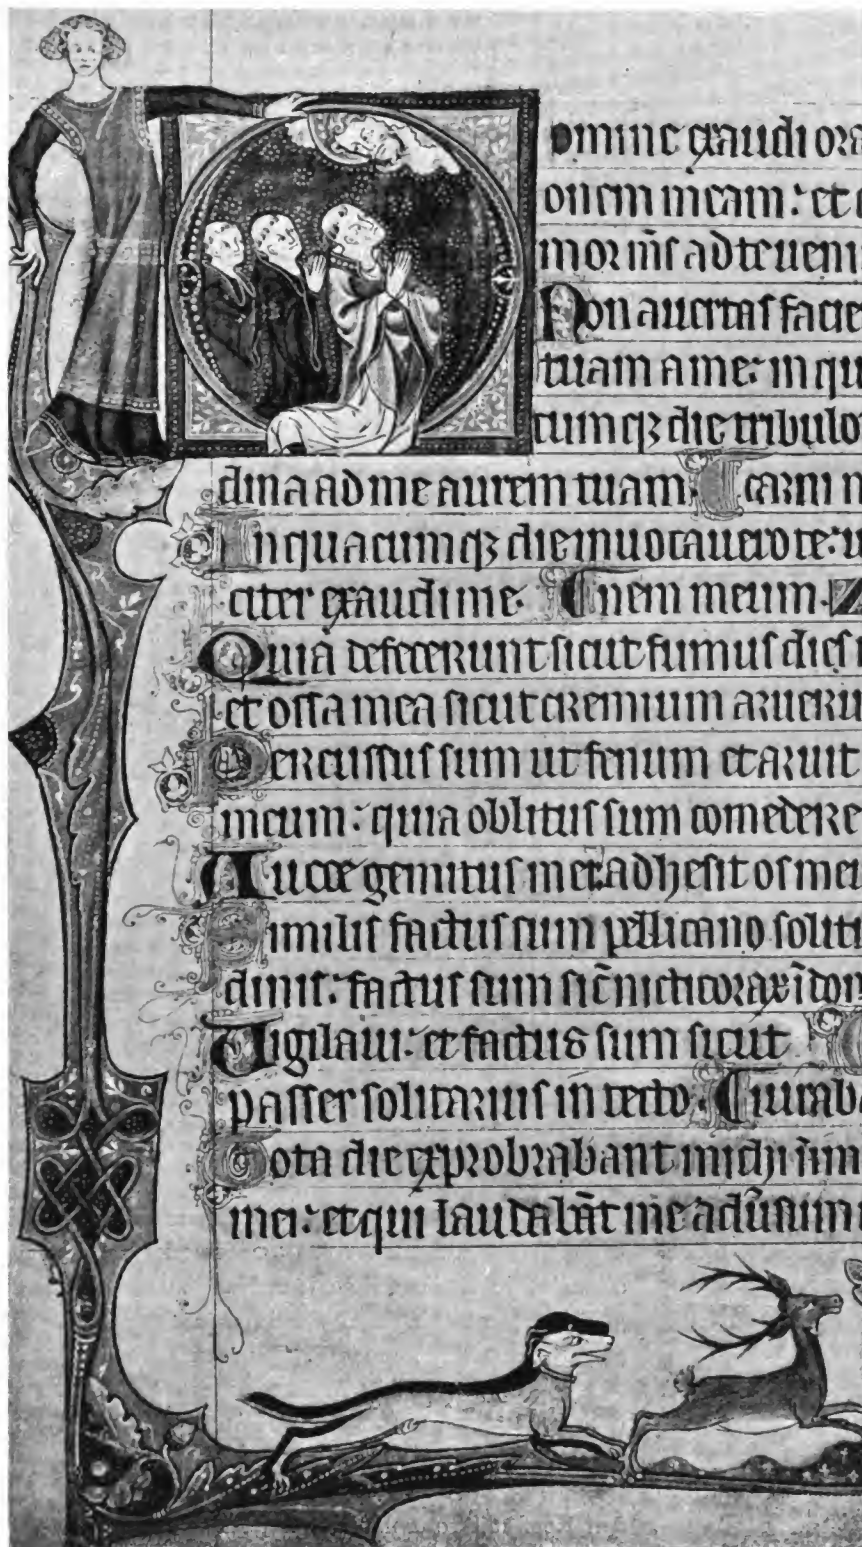 Domine exaudi ora
onem meam: et
mor m̄s ad te ueni
Non auertas facie
tuam a me: in qu
cumqꝫ die tribulo
clina ad me aurem tuam. carni
In quacumqꝫ die inuocauero te: u
citer exaudi me. nem meum.
Quia defecerunt sicut fumus dies
et ossa mea sicut cremium arueru
Percussus sum ut fenum et aruit
meum: quia oblitus sum comedere
A uoce gemitus mei: adhesit os mei
Similis factus sum pellicano soliti
dinis: factus sum sic̄ nicticorax ī dom
Uigilaui: et factus sum sicut
passer solitarius in tecto. iurab
Tota die exprobrabant michi inim
mei: et qui laudabāt me adūsum